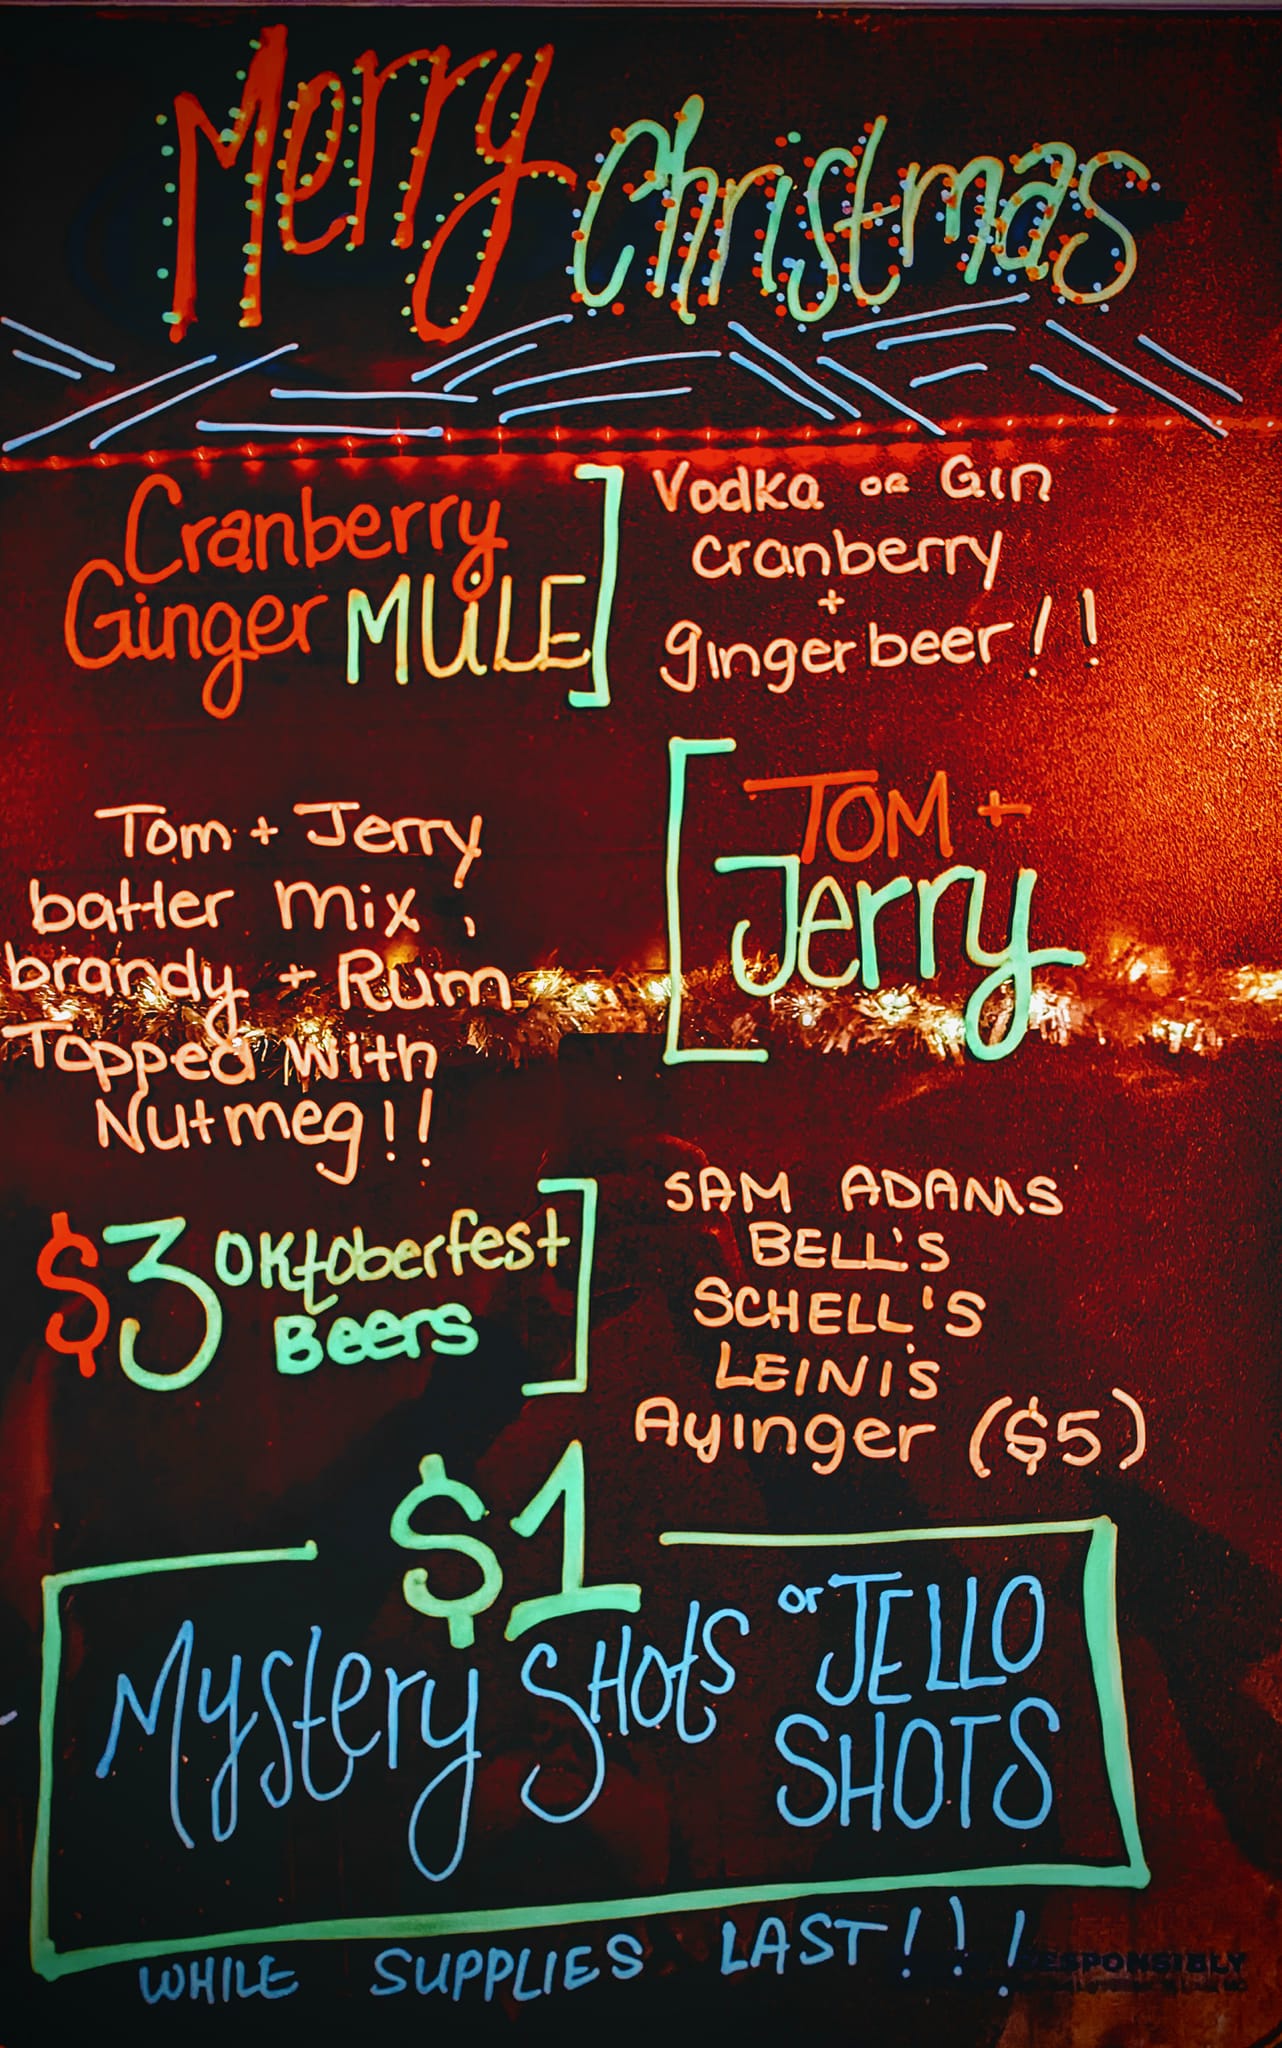 Merry Christmas
Cranberry
Ginger MULE
Vodka OR Gin
cranberry
+
ginger beer!!
Tom + Jerry
batter mix,
brandy + Rum
Topped with
Nutmeg!!
TOM +
Jerry
$3 Oktoberfest
Beers
SAM ADAMS
BELL'S
SCHELL'S
LEINI'S
Ayinger ($5)
$1
Mystery SHots or JELLO
SHOTS
WHILE SUPPLIES LAST!!!
RESPONSIBLY